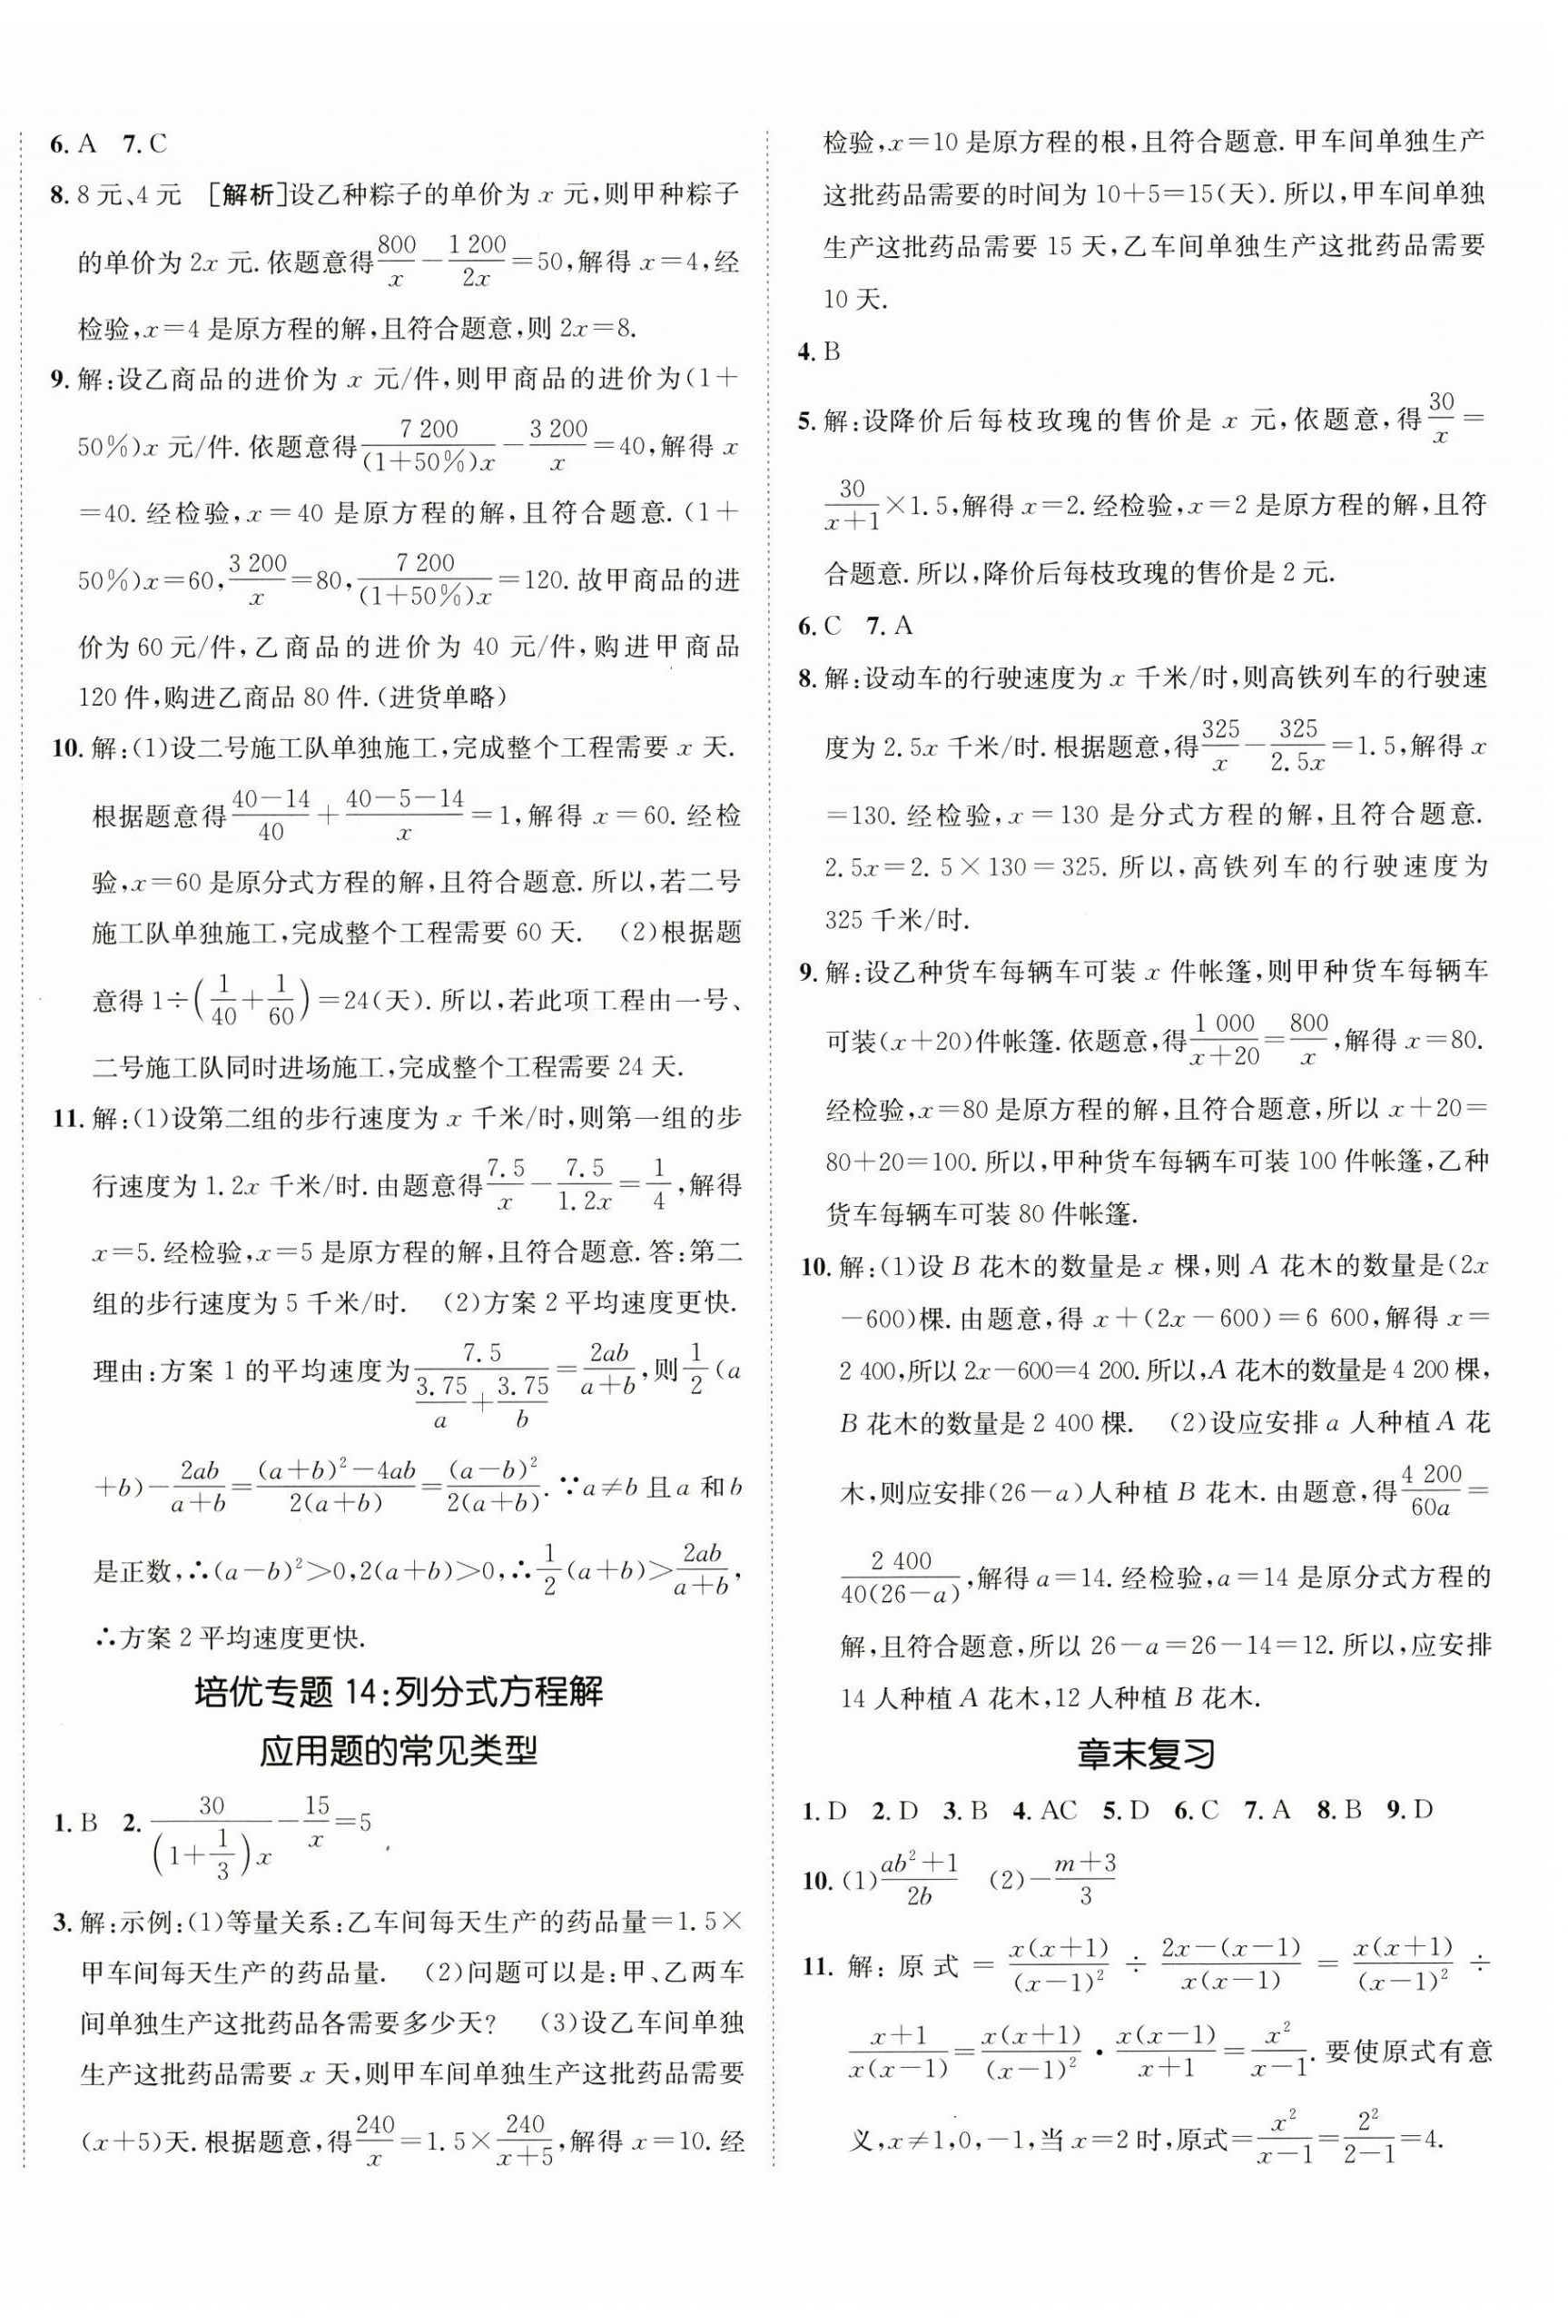 6. A　7. C
8. 8 元、4 元　[解析]设乙种粽子的单价为 x 元,则甲种粽子
的单价为 2x 元. 依题意得 800/x − 1 200/2x =50,解得 x=4,经
检验,x=4 是原方程的解,且符合题意,则 2x=8.
9. 解:设乙商品的进价为 x 元/件,则甲商品的进价为(1+
50%)x 元/件. 依题意得 7 200/(1+50%)x − 3 200/x =40,解得 x
=40. 经检验,x=40 是原方程的解,且符合题意. (1+
50%)x=60, 3 200/x =80, 7 200/(1+50%)x =120. 故甲商品的进
价为 60 元/件,乙商品的进价为 40 元/件,购进甲商品
120 件,购进乙商品 80 件. (进货单略)
10. 解:(1)设二号施工队单独施工,完成整个工程需要 x 天.
根据题意得 (40−14)/40 + (40−5−14)/x =1,解得 x=60. 经检
验,x=60 是原分式方程的解,且符合题意. 所以,若二号
施工队单独施工,完成整个工程需要 60 天.　(2)根据题
意得 1÷(1/40 + 1/60)=24(天). 所以,若此项工程由一号、
二号施工队同时进场施工,完成整个工程需要 24 天.
11. 解:(1)设第二组的步行速度为 x 千米/时,则第一组的步
行速度为 1.2x 千米/时. 由题意得 7.5/x − 7.5/1.2x = 1/4,解得
x=5. 经检验,x=5 是原方程的解,且符合题意. 答:第二
组的步行速度为 5 千米/时.　(2)方案 2 平均速度更快.
理由:方案 1 的平均速度为 7.5/(3.75/a + 3.75/b) = 2ab/(a+b),则 1/2 (a
+b)− 2ab/(a+b) = ((a+b)²−4ab)/2(a+b) = (a−b)²/2(a+b). ∵a≠b 且 a 和 b
是正数,∴(a−b)²>0,2(a+b)>0,∴ 1/2 (a+b)> 2ab/(a+b),
∴方案 2 平均速度更快.
培优专题 14:列分式方程解
应用题的常见类型
1. B　2. 30/(1+1/3)x − 15/x =5
3. 解:示例:(1)等量关系:乙车间每天生产的药品量=1.5×
甲车间每天生产的药品量.　(2)问题可以是:甲、乙两车
间单独生产这批药品各需要多少天?　(3)设乙车间单独
生产这批药品需要 x 天,则甲车间单独生产这批药品需要
(x+5)天. 根据题意,得 240/x =1.5× 240/(x+5),解得 x=10. 经
检验,x=10 是原方程的根,且符合题意. 甲车间单独生产
这批药品需要的时间为 10+5=15(天). 所以,甲车间单独
生产这批药品需要 15 天,乙车间单独生产这批药品需要
10 天.
4. B
5. 解:设降价后每枝玫瑰的售价是 x 元,依题意,得 30/x =
30/(x+1) ×1.5,解得 x=2. 经检验,x=2 是原方程的解,且符
合题意. 所以,降价后每枝玫瑰的售价是 2 元.
6. C　7. A
8. 解:设动车的行驶速度为 x 千米/时,则高铁列车的行驶速
度为 2.5x 千米/时. 根据题意,得 325/x − 325/2.5x =1.5,解得 x
=130. 经检验,x=130 是分式方程的解,且符合题意.
2.5x=2.5×130=325. 所以,高铁列车的行驶速度为
325 千米/时.
9. 解:设乙种货车每辆车可装 x 件帐篷,则甲种货车每辆车
可装(x+20)件帐篷. 依题意,得 1 000/(x+20) = 800/x,解得 x=80.
经检验,x=80 是原方程的解,且符合题意,所以 x+20=
80+20=100. 所以,甲种货车每辆车可装 100 件帐篷,乙种
货车每辆车可装 80 件帐篷.
10. 解:(1)设 B 花木的数量是 x 棵,则 A 花木的数量是(2x
−600)棵. 由题意,得 x+(2x−600)=6 600,解得 x=
2 400,所以 2x−600=4 200. 所以,A 花木的数量是 4 200 棵,
B 花木的数量是 2 400 棵.　(2)设应安排 a 人种植 A 花
木,则应安排(26−a)人种植 B 花木. 由题意,得 4 200/60a =
2 400/40(26−a),解得 a=14. 经检验,a=14 是原分式方程的
解,且符合题意,所以 26−a=26−14=12. 所以,应安排
14 人种植 A 花木,12 人种植 B 花木.
章末复习
1. D　2. D　3. B　4. AC　5. D　6. C　7. A　8. B　9. D
10. (1) (ab²+1)/2b　(2)− (m+3)/3
11. 解:原式= x(x+1)/(x−1)² ÷ (2x−(x−1))/x(x−1) = x(x+1)/(x−1)² ÷
(x+1)/x(x−1) = x(x+1)/(x−1)² · x(x−1)/(x+1) = x²/(x−1). 要使原式有意
义,x≠1,0,−1,当 x=2 时,原式= x²/(x−1) = 2²/(2−1) =4.